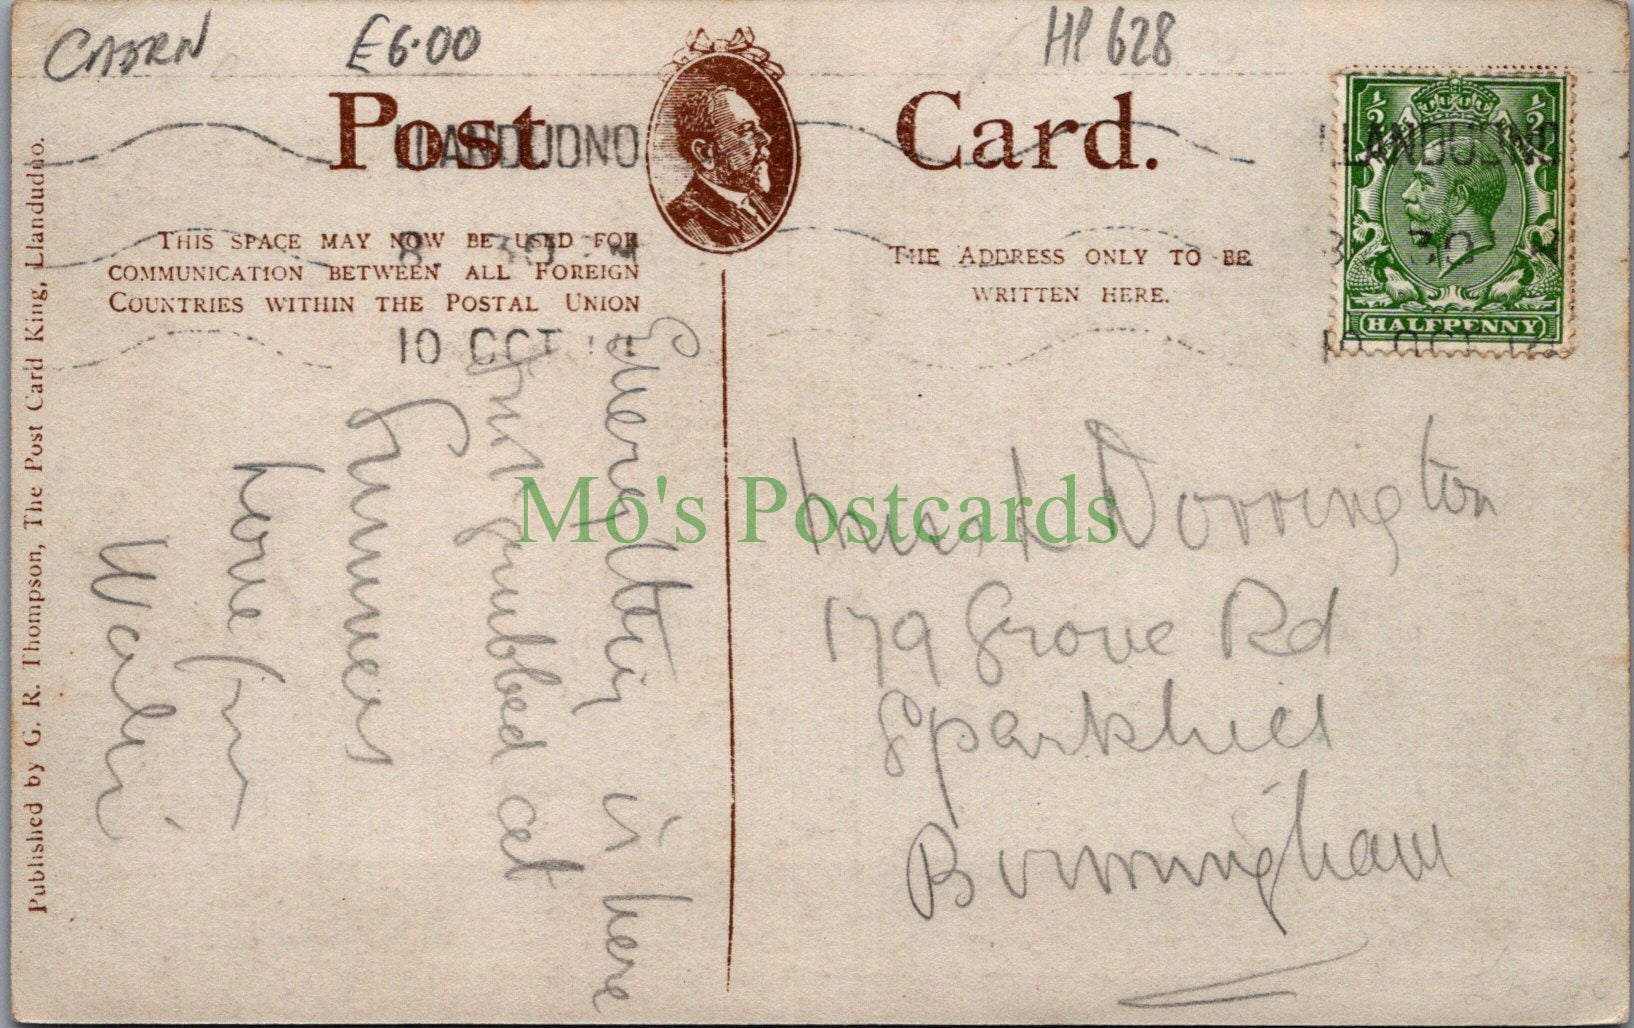 CAERN £6.00 HP 628
Post Card.
LLANDUDNO
8. 30
10 OCT
LLANDUDNO
30
10 OCT
½ ½
HALFPENNY
THIS SPACE MAY NOW BE USED FOR
COMMUNICATION BETWEEN ALL FOREIGN
COUNTRIES WITHIN THE POSTAL UNION
THE ADDRESS ONLY TO BE
WRITTEN HERE.
Published by G. R. Thompson, The Post Card King, Llandudno.
is here
Just grubbed at
love from
Dorrington
179 Grove Rd
Sparkhill
Birmingham
Mo's Postcards